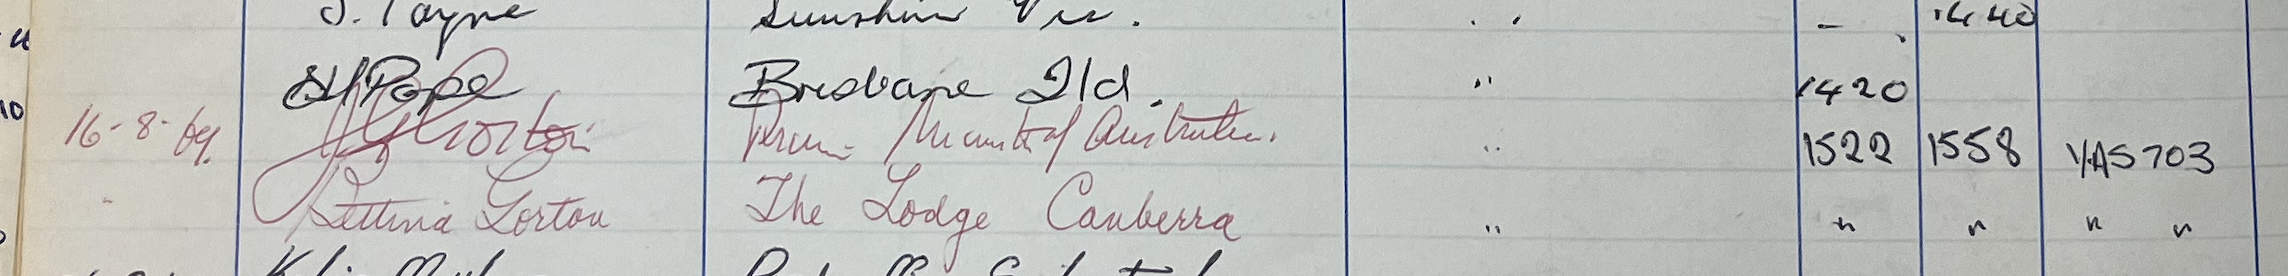 J. Payne Sunshine Vic. " - 1440
Pope Brisbane Qld. " 1420
16-8-69. J G Gorton Prime Minister of Australia. " 1522 1558 VAS 703
" Bettina Gorton The Lodge Canberra " " " " "